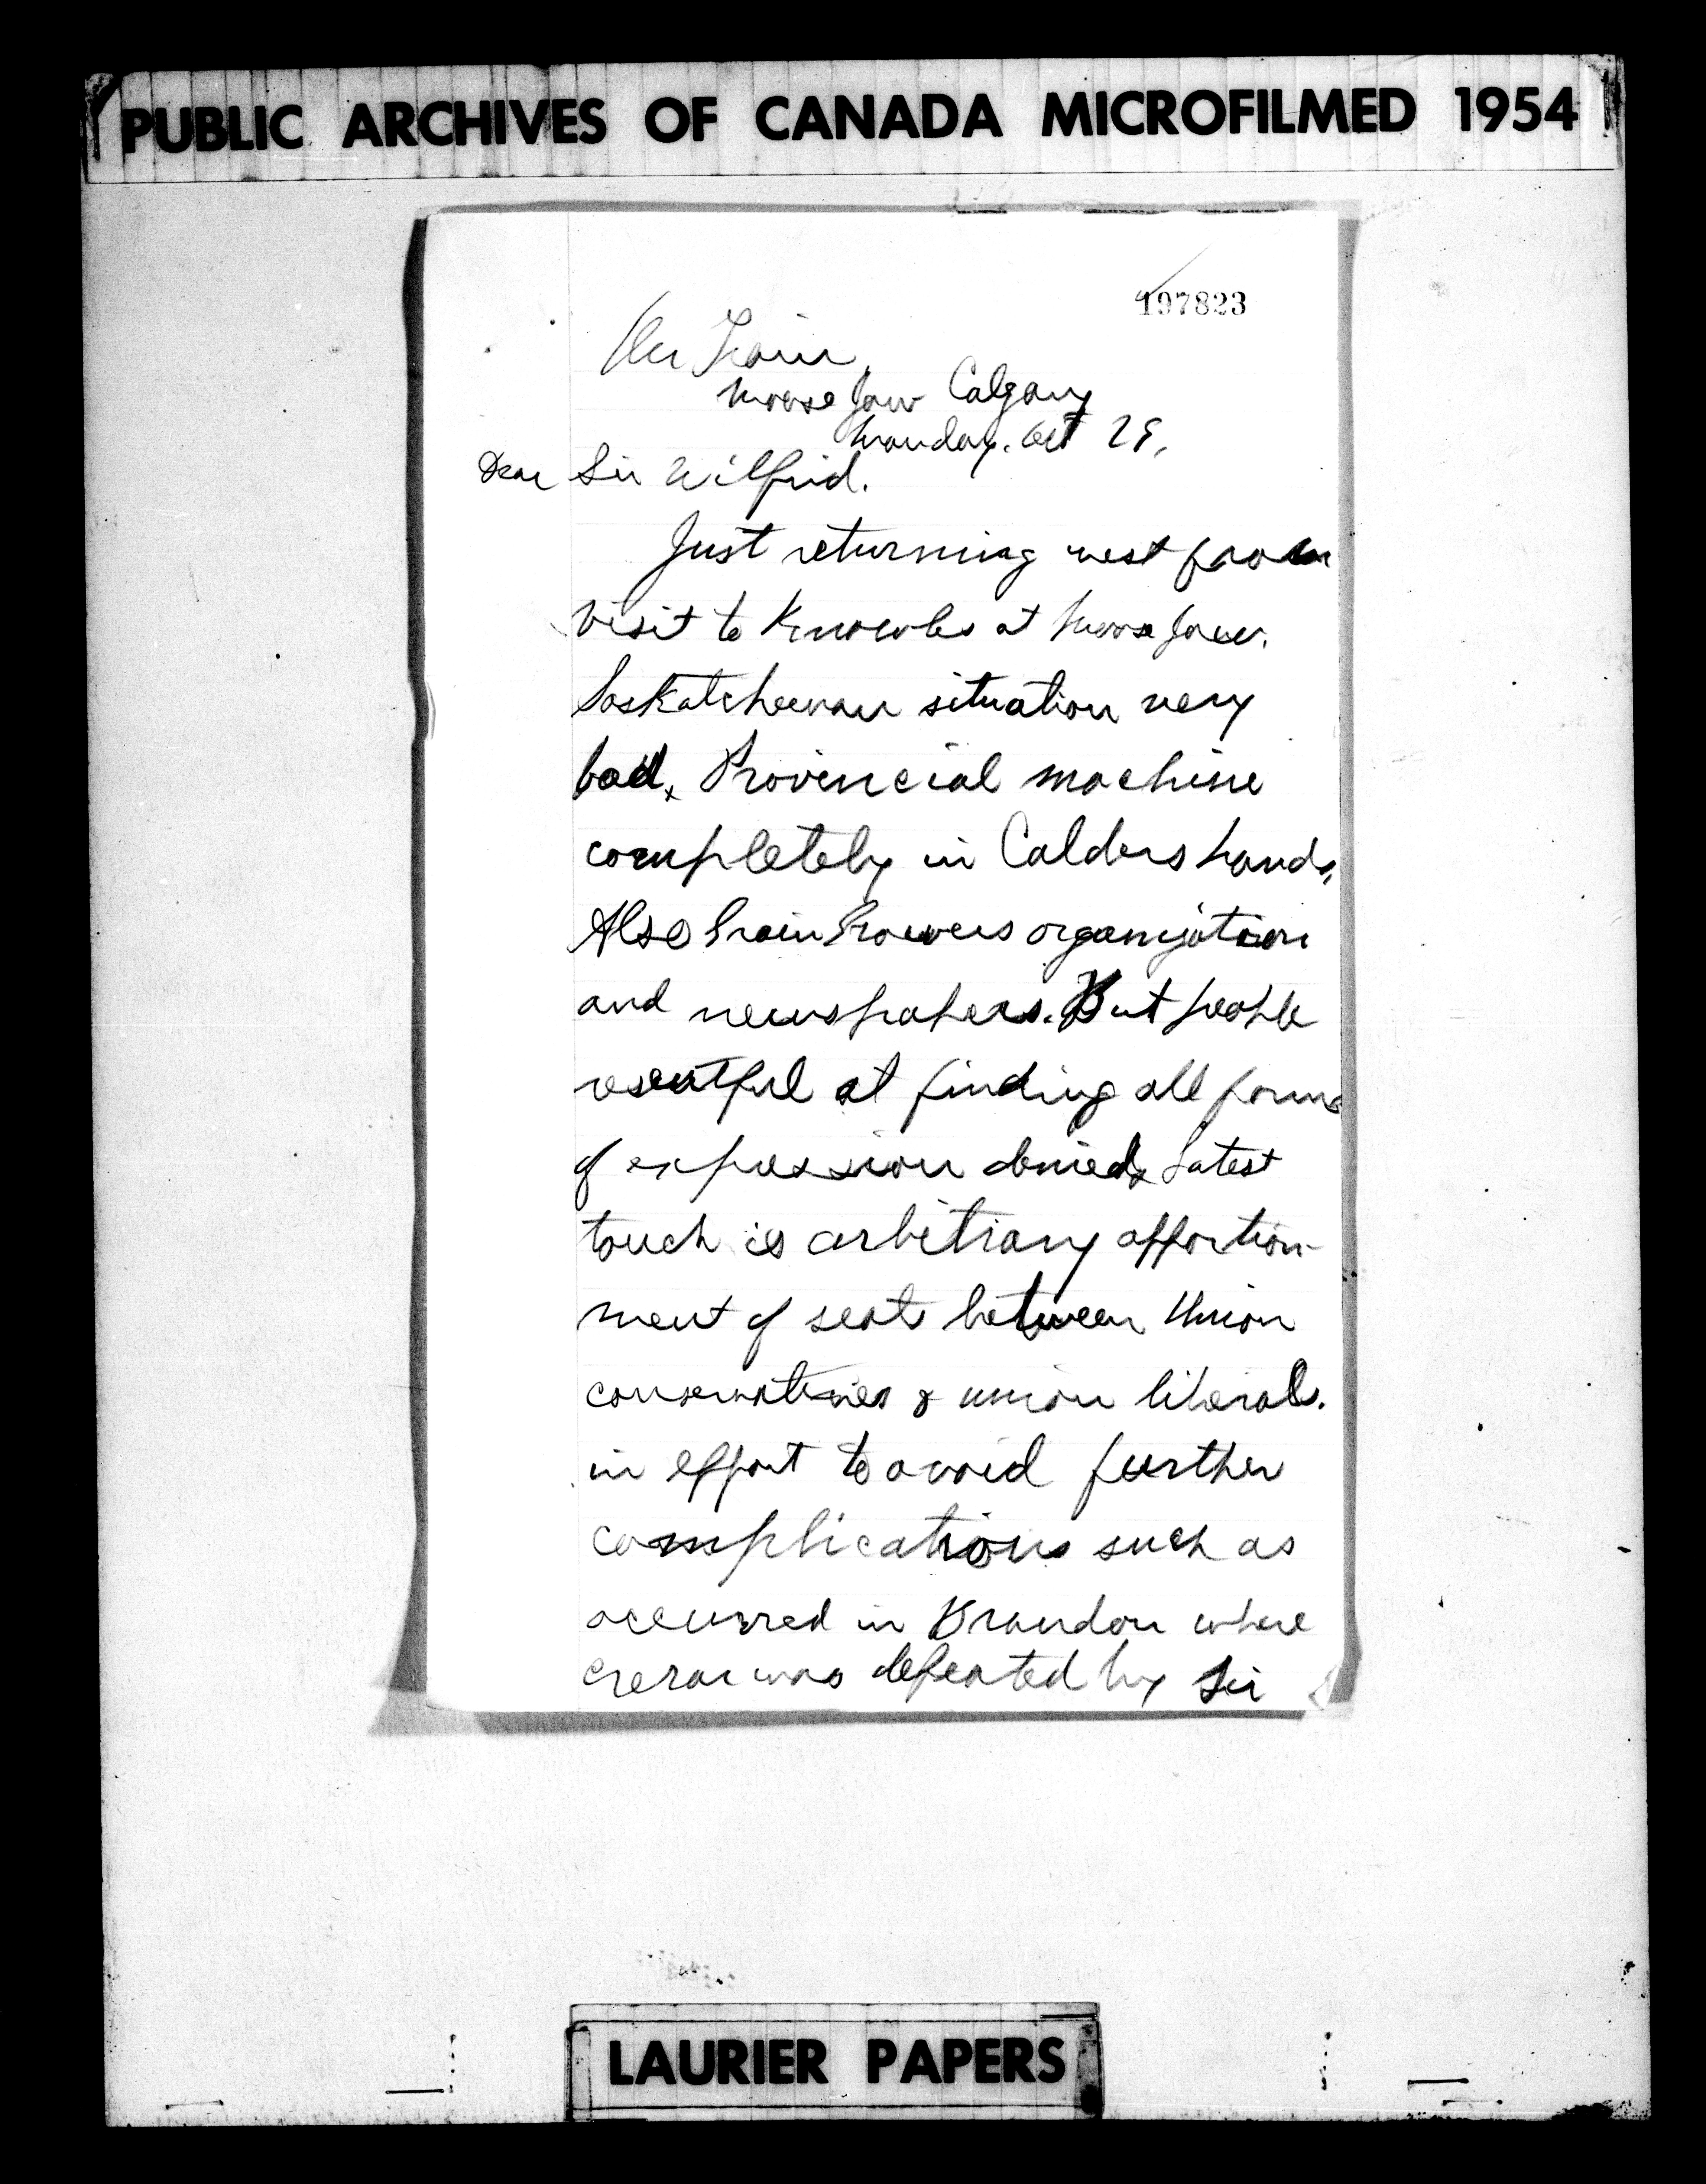 PUBLIC ARCHIVES OF CANADA MICROFILMED 1954
197823
On Train
Moose Jaw Calgary
Monday. Oct 29,
Dear Sir Wilfrid.
Just returning west from
visit to Knowles at Moose Jaw.
Saskatchewan situation very
bad. Provincial machine
completely in Calders hands,
Also Grain Growers organization
and newspapers. But people
resentful at finding all forms
of expression denied. Latest
touch is arbitrary apportion-
ment of seats between Union
conservatives & union liberals.
in effort to avoid further
complications such as
occurred in Brandon where
Crerar was defeated by Sir
LAURIER PAPERS